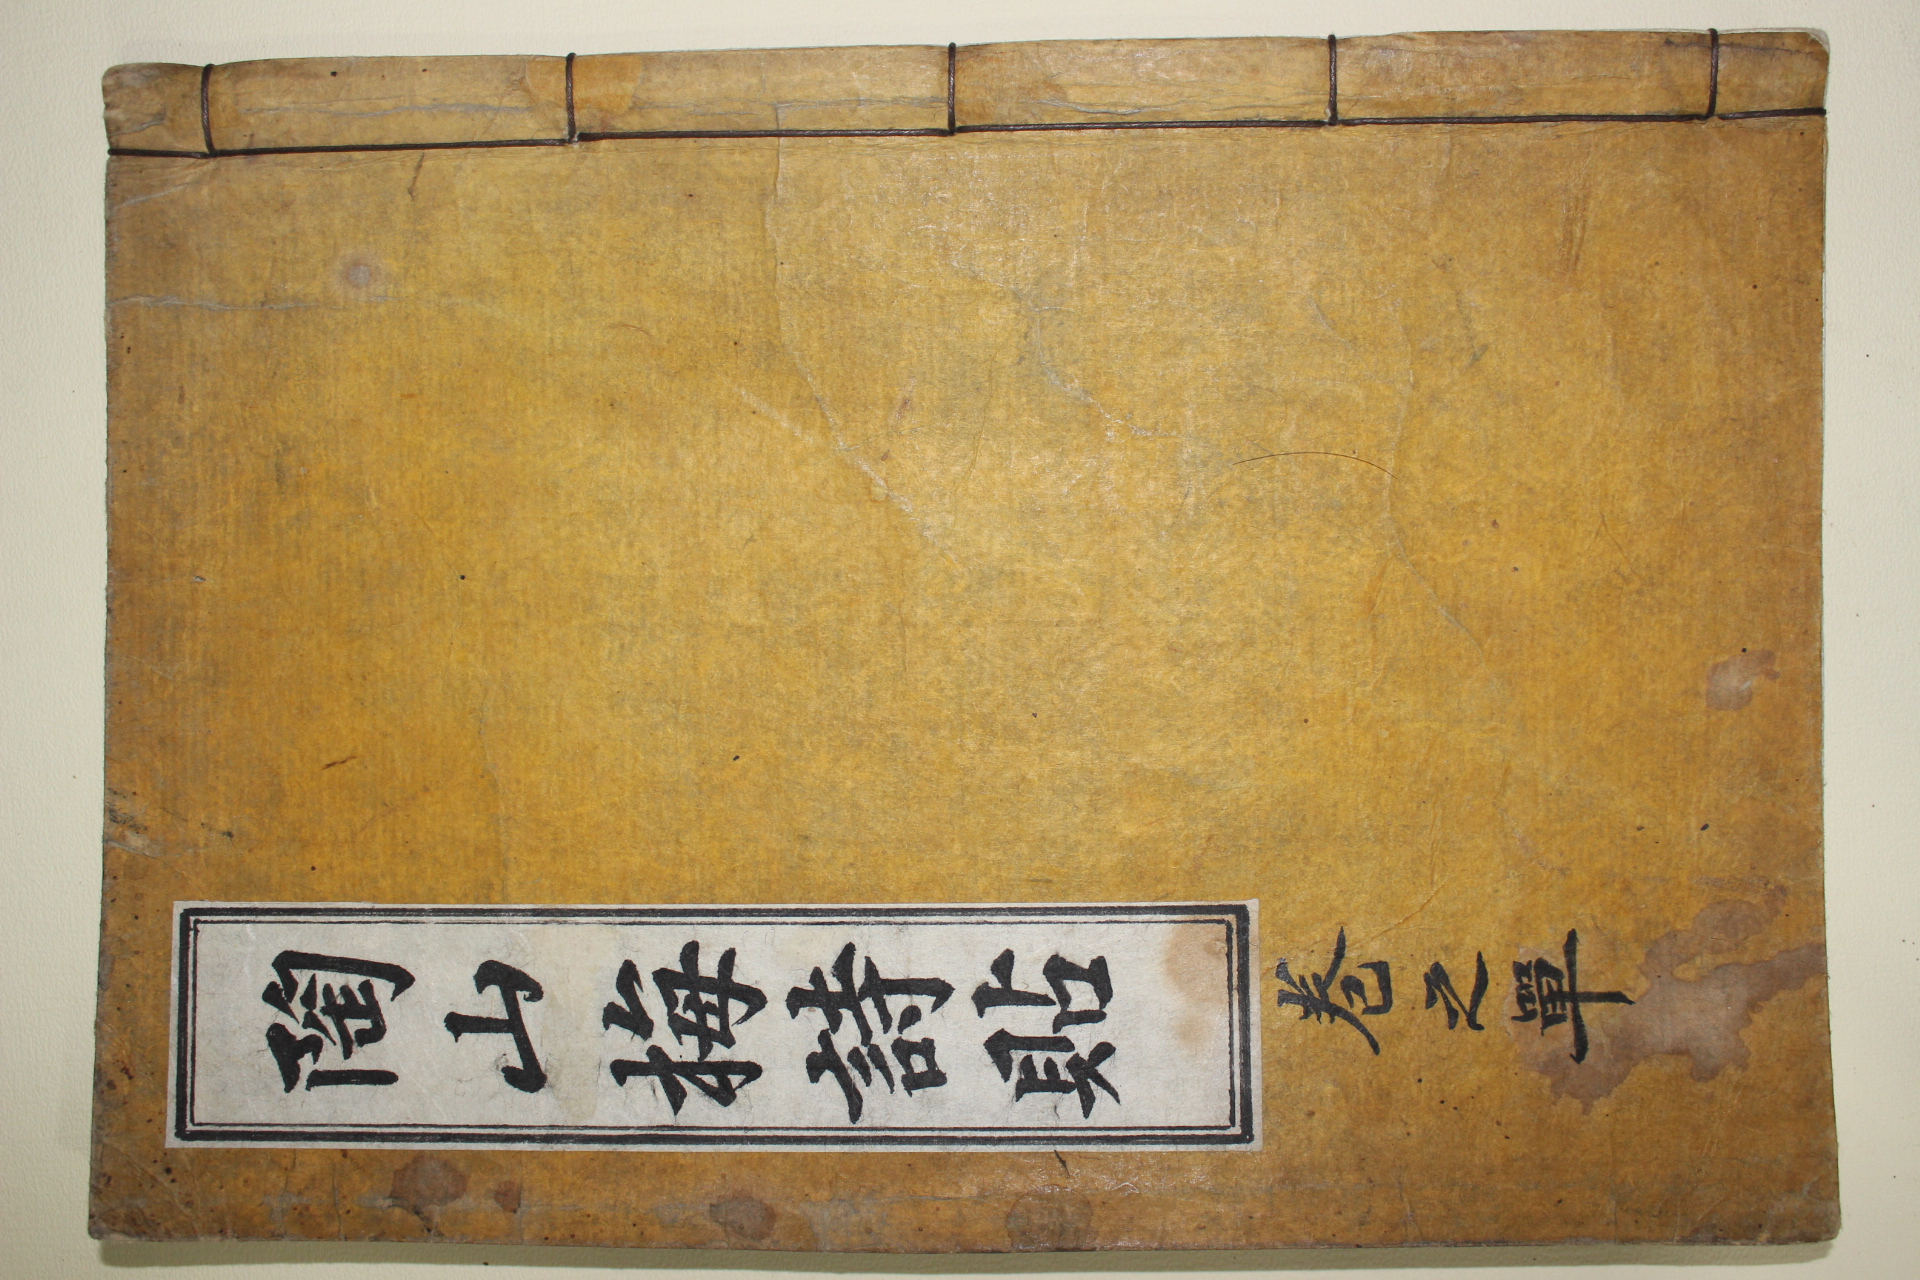 陶山梅詩貼
卷之單